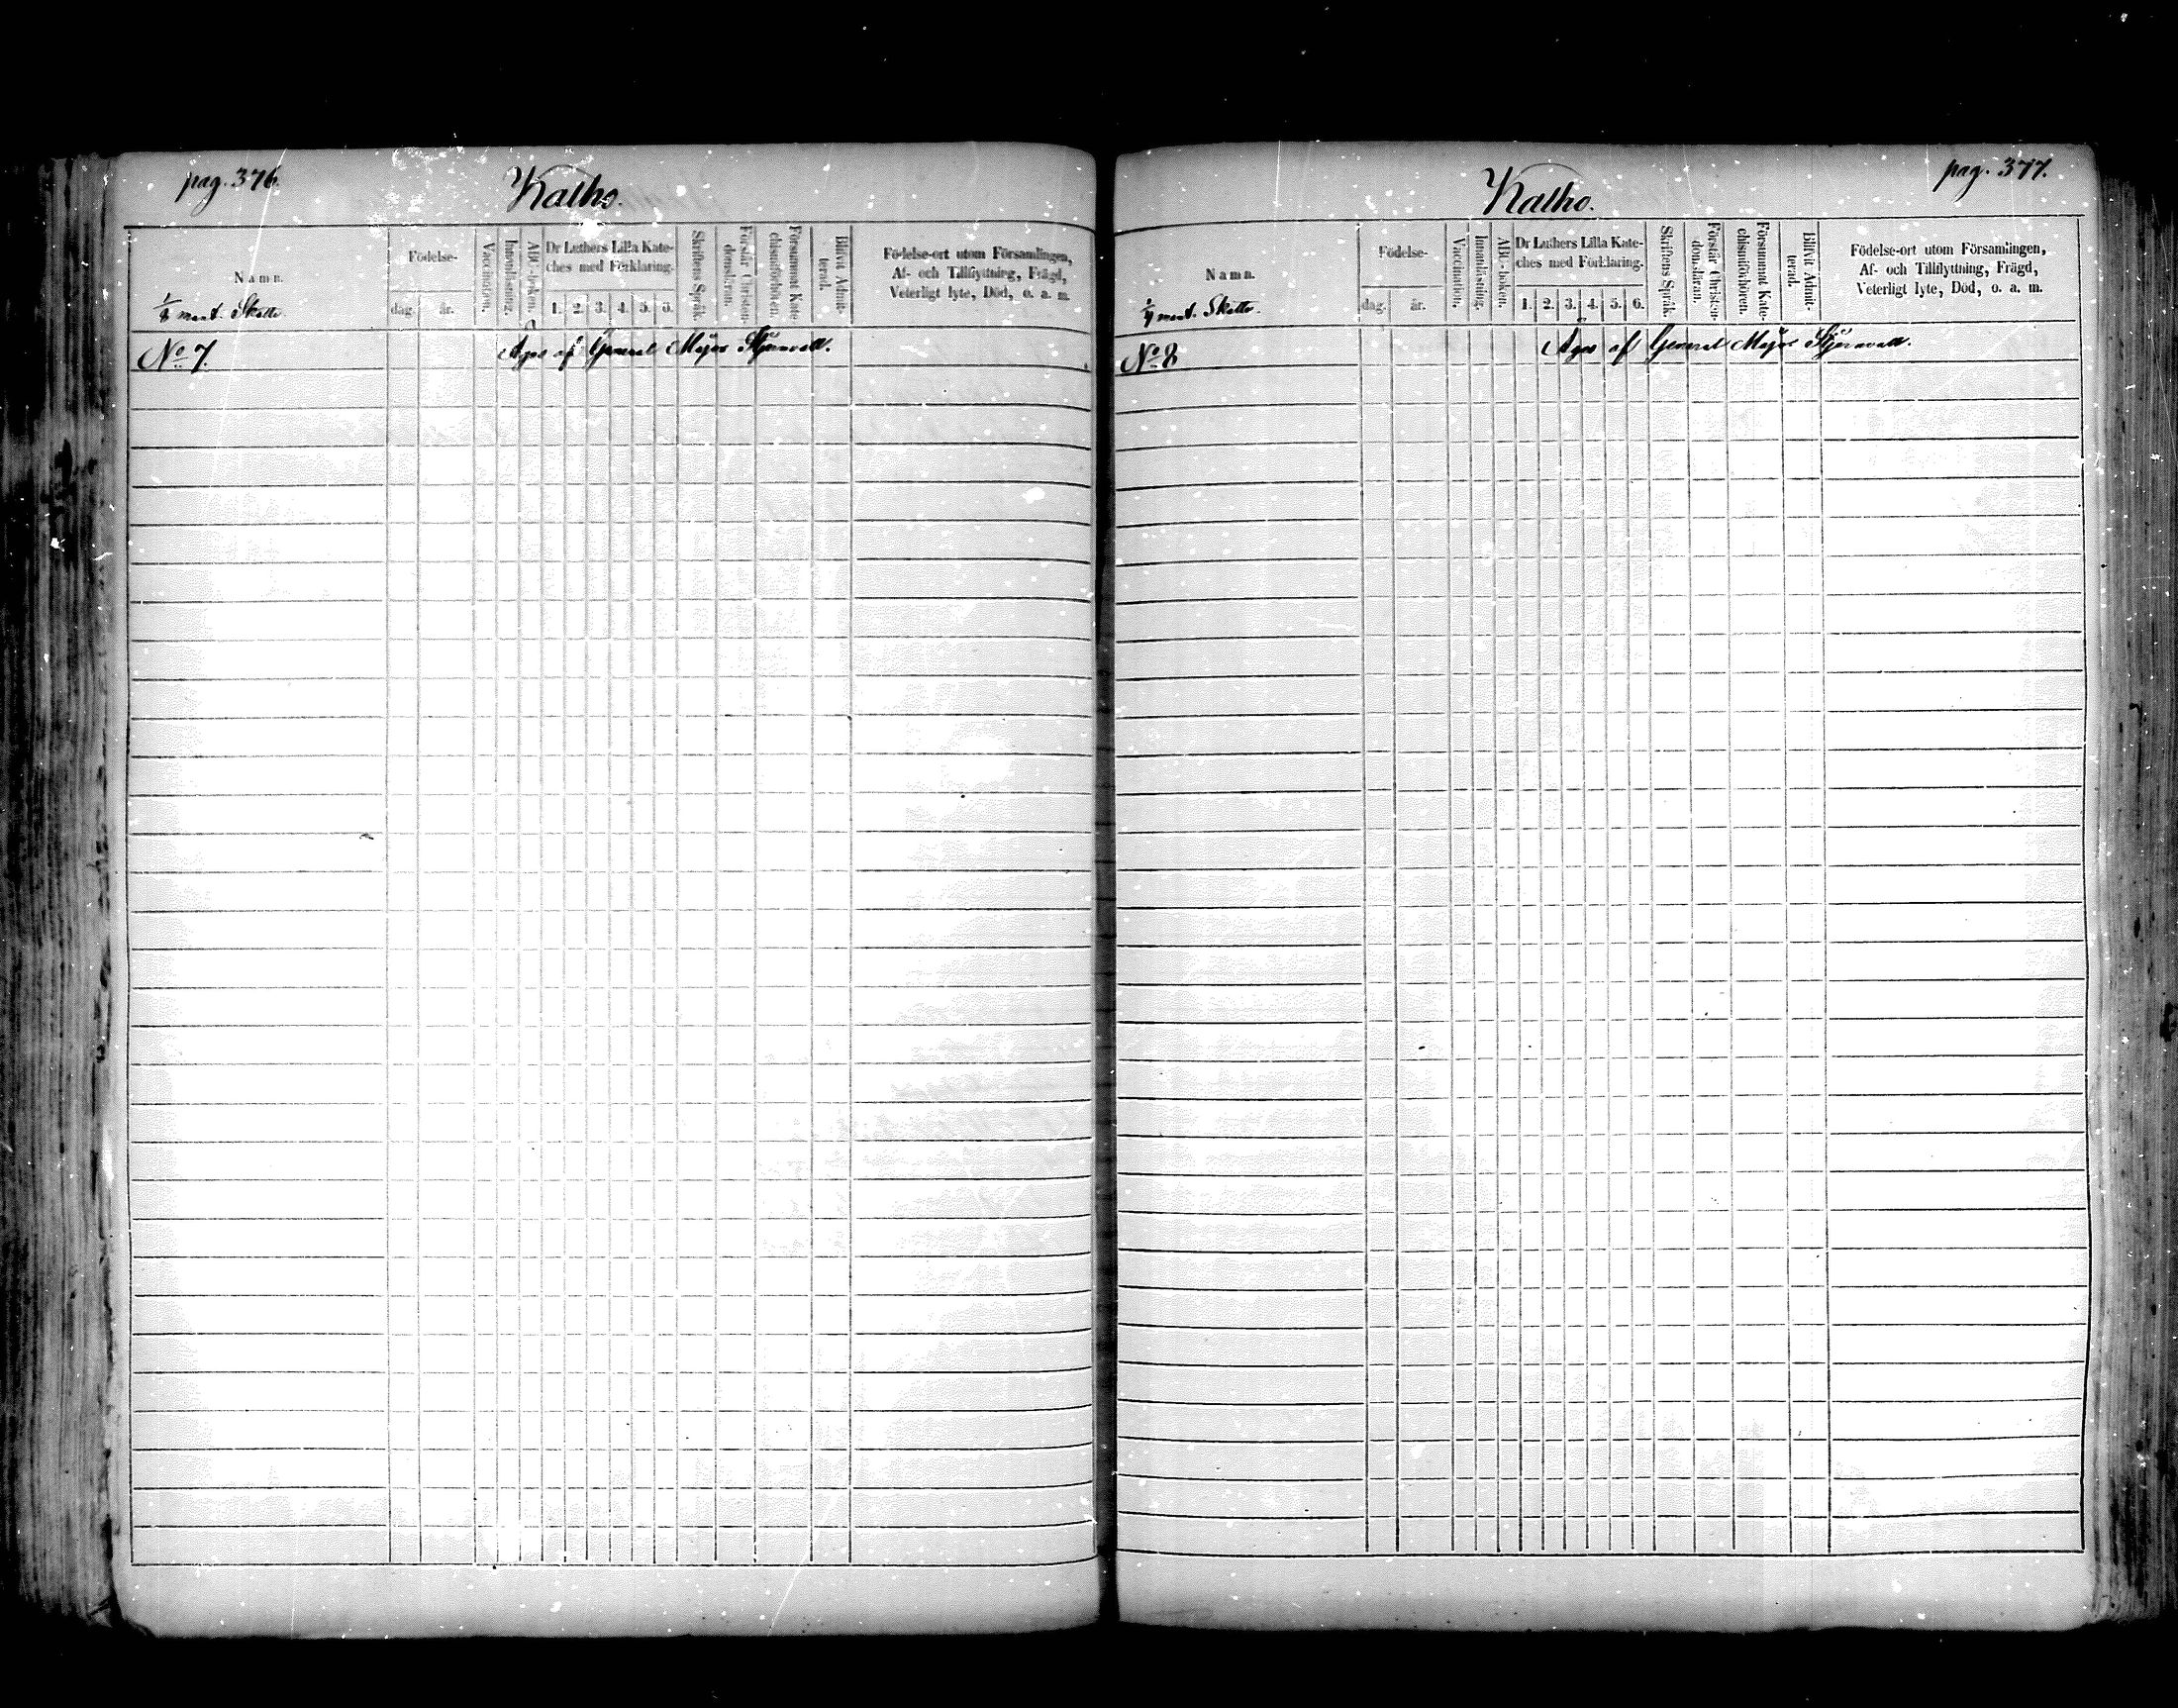 pag. 376.
Kalho.
Namn.
Födelse-
dag.
år.
Vaccination.
Innanläsning.
ABC-boken.
Dr Luthers Lilla Kate-
ches med Förklaring.
1. 2. 3. 4. 5. 6.
Skriftens Språk.
Förstår Christen-
domsläran.
Försummat Kate-
chismiförhören.
Blifvit Admit-
terad.
Födelse-ort utom Församlingen,
Af- och Tillflyttning, Frägd,
Veterligt lyte, Död, o. a. m.
mant. Skatte.
No 7. Äges af General Major
pag. 377.
Kalho.
Namn.
Födelse-
dag.
år.
Vaccination.
Innanläsning.
ABC-boken.
Dr Luthers Lilla Kate-
ches med Förklaring.
1. 2. 3. 4. 5. 6.
Skriftens Språk.
Förstår Christen-
domsläran.
Försummat Kate-
chismiförhören.
Blifvit Admit-
terad.
Födelse-ort utom Församlingen,
Af- och Tillflyttning, Frägd,
Veterligt lyte, Död, o. a. m.
mant. Skatte.
No 8 Äges af General Major